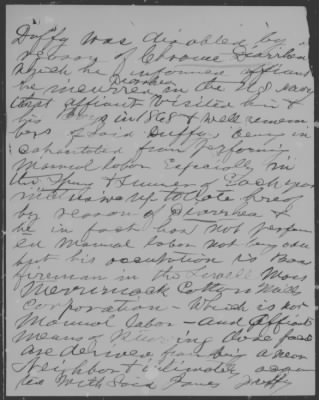 Duffy was disabled by
reason of Chronic Diarrhea
which he informed affiant
he incurred in the U S Navy
that affiant visited him &
his in 1868 & well remem
bers of said Duffy being in
exhausted from performing
Manual labor Especially in
the Spring & Summer of Each year
up to date hereof
by reason of Diarrhea &
he in fact has not perform
ed Manual labor not any own
but his occupation is as a
fireman in the Lowell Mass
Merrimack Cotton Mills
Corporation - Which is not
Manual labor - and Affiants
means of Knowing above facts
are derived from being a near
Neighbor & intimately acquain
ted with Said James Duffy